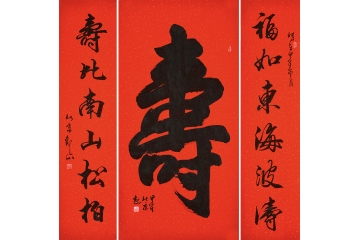 福如東海波濤
壽
壽比南山松柏